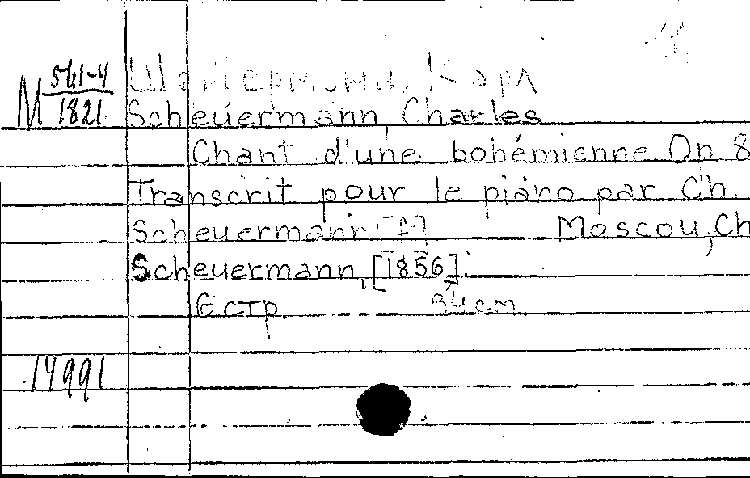 М 561-4
1821
Шейерманн, Карл
Scheuermann Charles
Chant d'une bohémienne Op 8
Transcrit pour le piano par Ch.
Scheuermann Moscou, Ch
Scheuermann, [1856].
6 стр 34 cm
14991